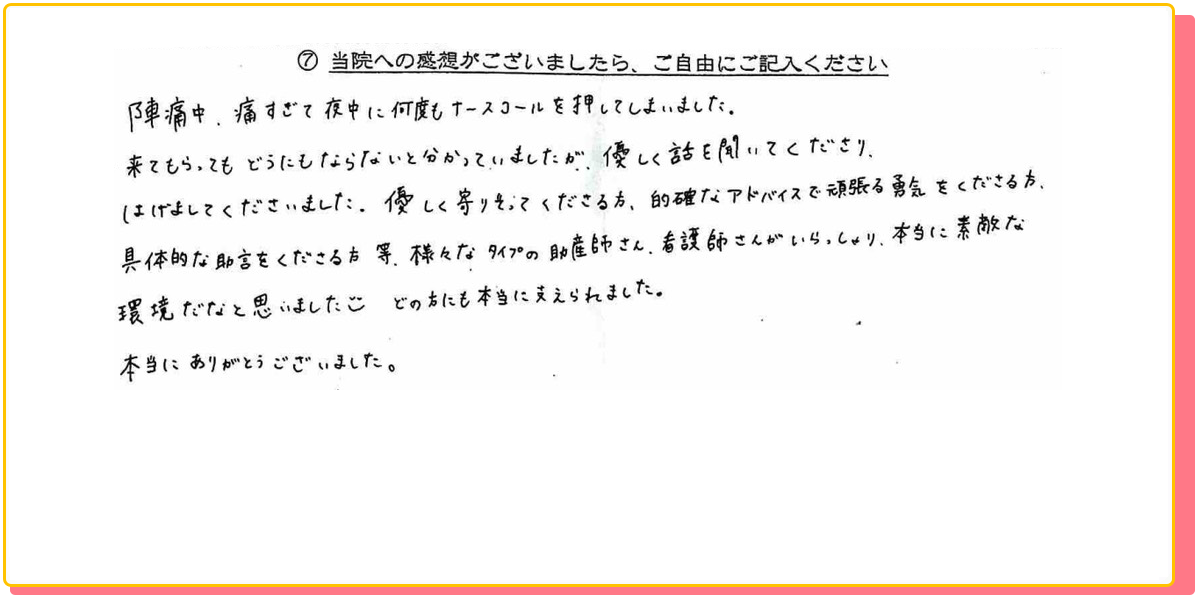 ⑦ 当院への感想がございましたら、ご自由にご記入ください
陣痛中、痛すぎて夜中に何度もナースコールを押してしまいました。
来てもらってもどうにもならないと分かっていましたが、優しく話を聞いてくださり、
はげましてくださいました。優しく寄りそってくださる方、的確なアドバイスで頑張る勇気をくださる方、
具体的な助言をくださる方 等、様々なタイプの助産師さん、看護師さんがいらっしゃり、本当に素敵な
環境だなと思いました どの方にも本当に支えられました。
本当にありがとうございました。